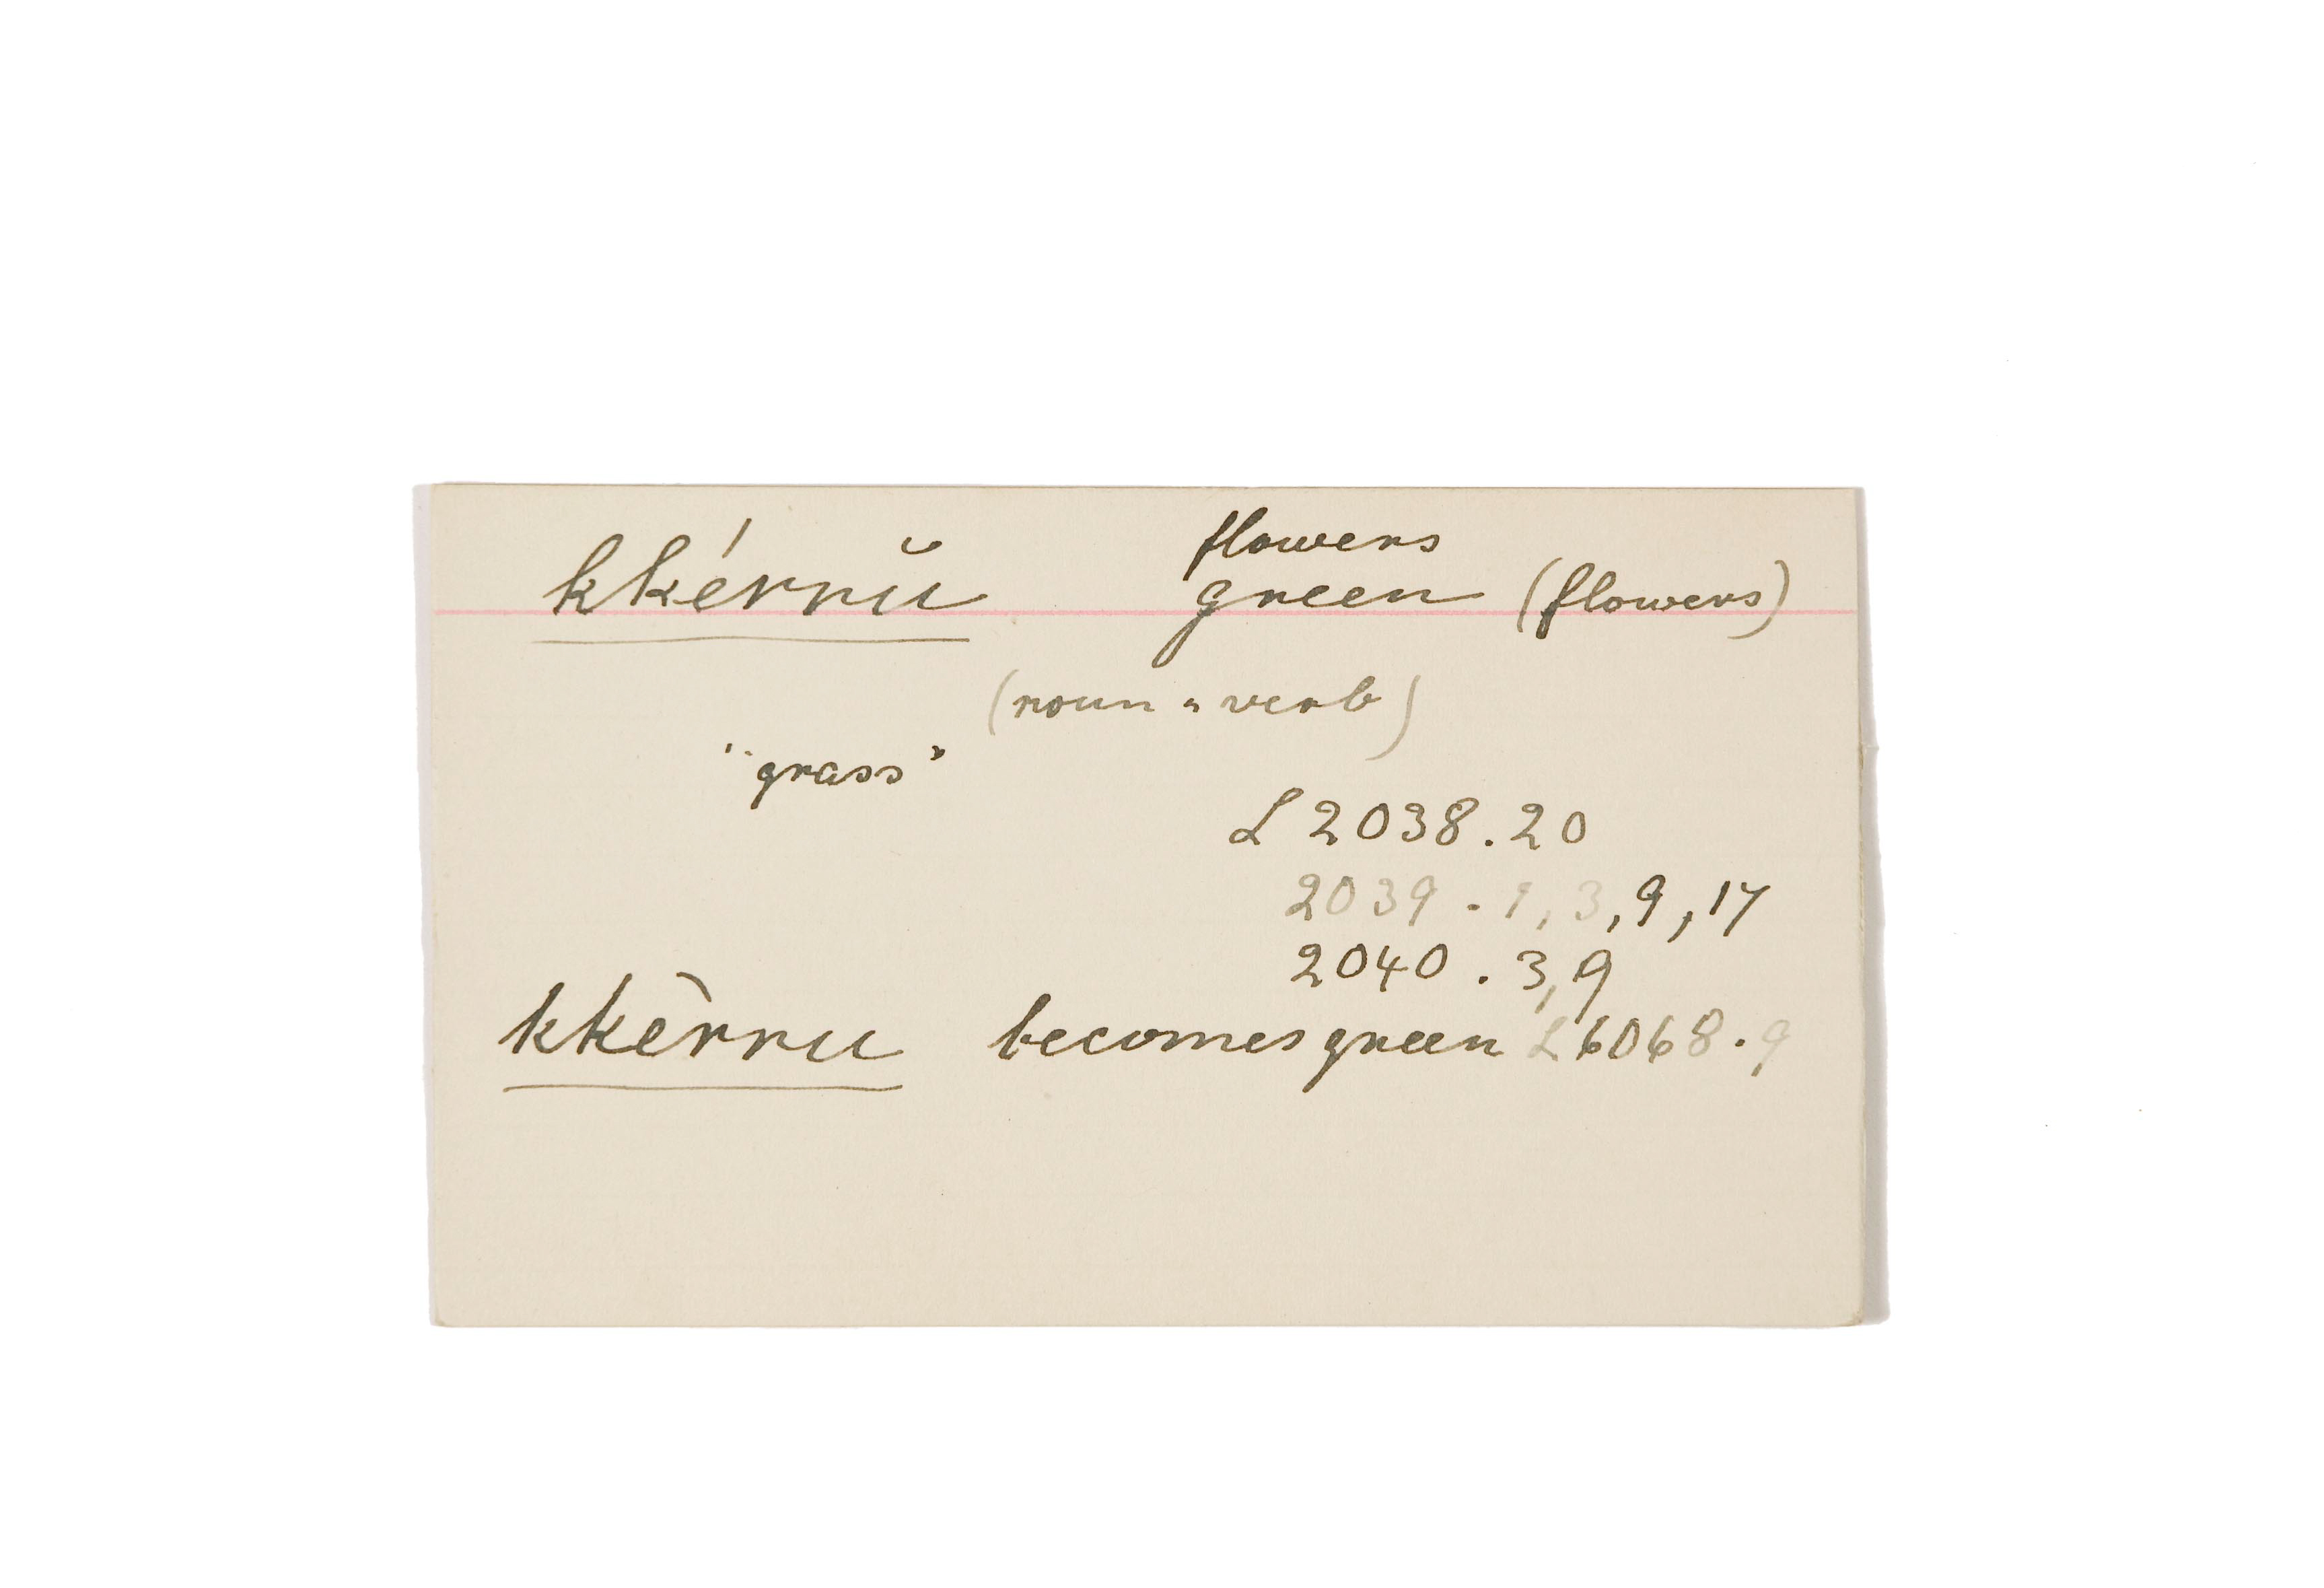 flowers
kkérrŭ green (flowers)
(noun = verb)
"grass"
L 2038.20
2039.1,3,9,17
2040.3,9
kkèrru becomes green L 6068.9